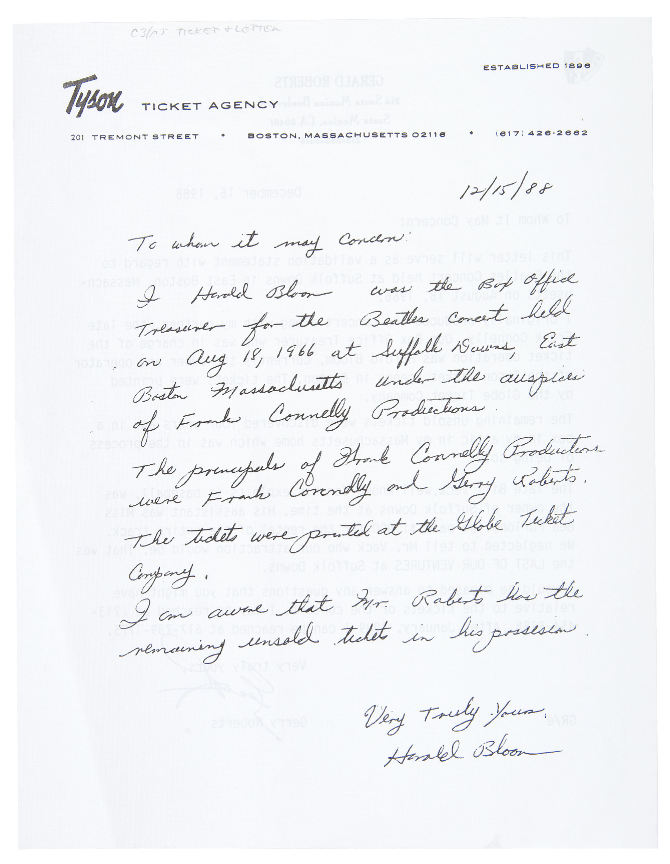 C3/NS TICKET & LETTER
ESTABLISHED 1896
Tyson TICKET AGENCY
201 TREMONT STREET • BOSTON, MASSACHUSETTS 02116 • (617) 426-2662
12/15/88
To whom it may concern:
I Harold Bloom was the Box Office
Treasurer for the Beatles Concert held
on Aug 18, 1966 at Suffolk Downs East
Boston Massachusetts under the auspices
of Frank Connelly Productions.
The principals of Frank Connelly Productions
were Frank Connelly and Gerry Roberts.
The tickets were printed at the Globe Ticket
Company.
I am aware that Mr. Roberts has the
remaining unsold ticket in his possesion.
Very Truly Yours.
Harold Bloom